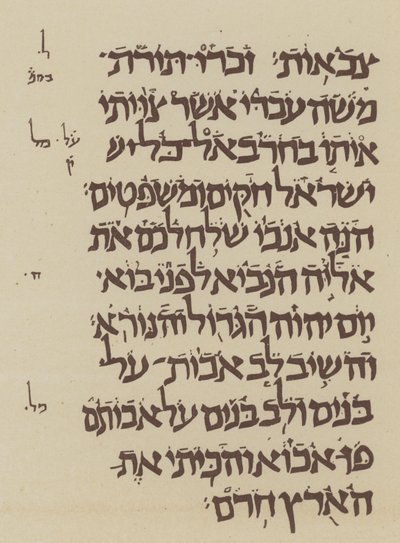 ל̇
צבאות זכרו תורת
משה עבדי אשר צויתי
אותו בחרב על כל יש
ישראל חקים ומשפטים
הנה אנכי שלח לכם את
אליה הנביא לפני בוא
יום יהוה הגדול והנורא
והשיב לב אבות על
מל.
בנים ולב בנים על אבותם
פן אבוא והכיתי את
הארץ חרם